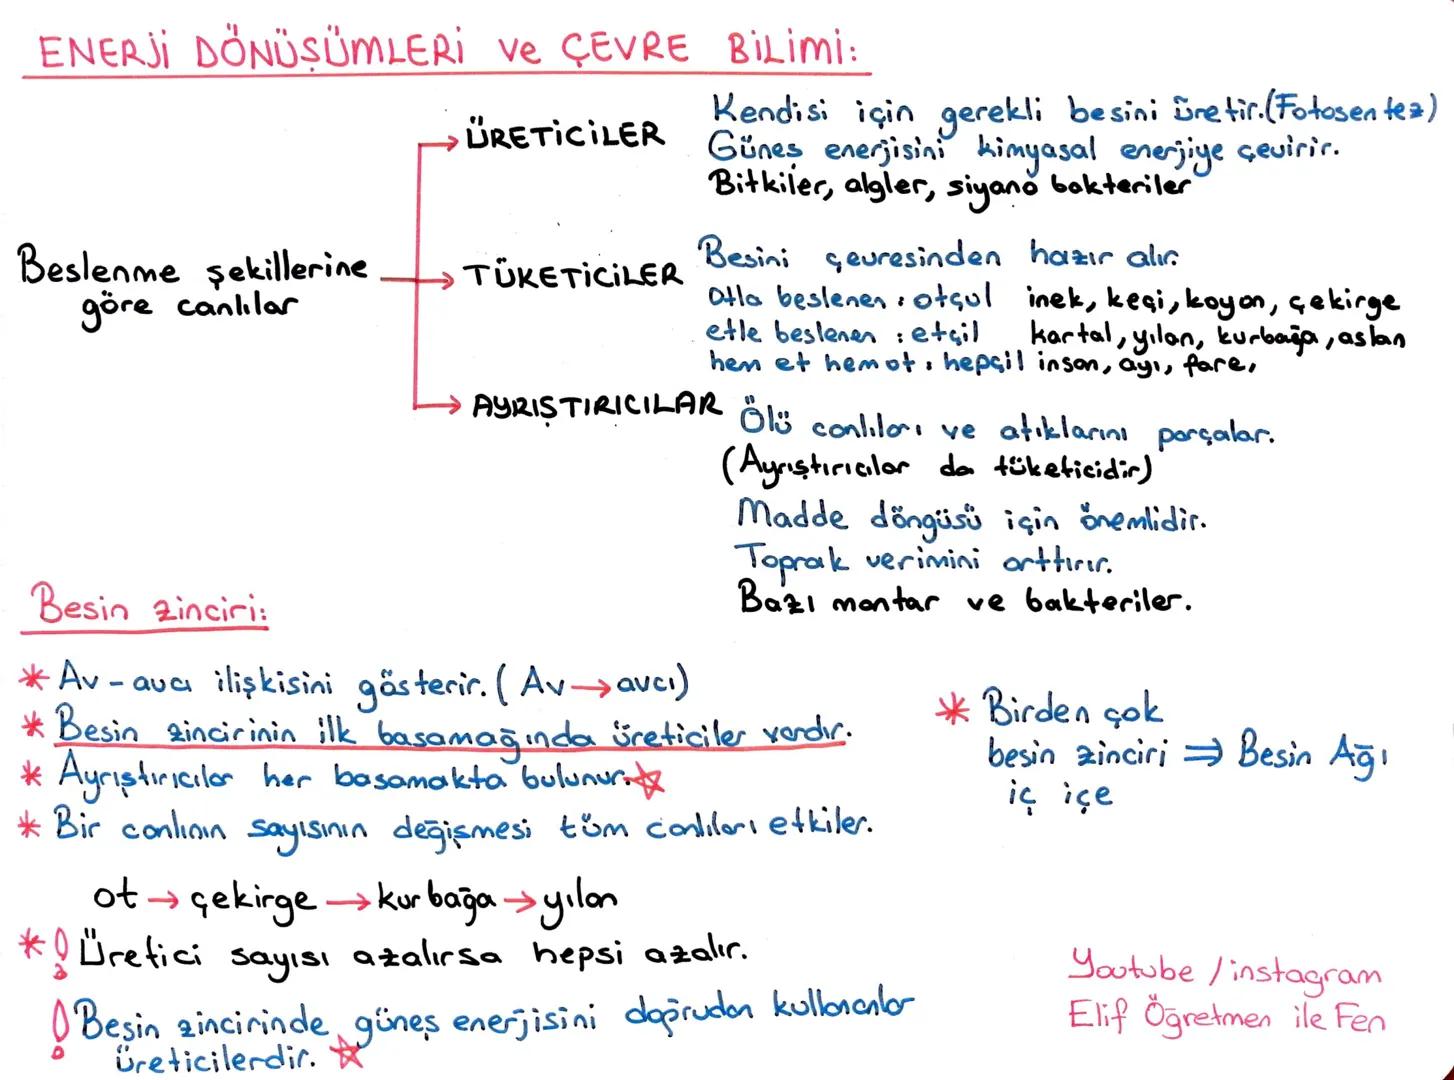 ENERJİ DÖNÜŞÜMLERİ ve ÇEVRE BİLİMİ:
Beslenme şekillerine
göre canlılar
ÜRETİCİLER
Kendisi için gerekli besini üretir.(Fotosentez)
Güneş enerjisini kimyasal enerjiye çevirir.
Bitkiler, algler, siyano bakteriler
TÜKETİCİLER
Besini çevresinden hazır alır.
Otla beslenen : otçul inek, keçi, koyon, çekirge
etle beslenen : etçil kartal, yılan, kurbağa, aslan
hem et hem ot : hepçil insan, ayı, fare,
AYRIŞTIRICILAR
Ölü canlıları ve atıklarını parçalar.
(Ayrıştırıcılar da tüketicidir)
Madde döngüsü için önemlidir.
Toprak verimini arttırır.
Bazı mantar ve bakteriler.
Besin zinciri:
* Av - avcı ilişkisini gösterir. (Av → avcı)
* Besin zincirinin ilk basamağında üreticiler vardır.
* Ayrıştırıcılar her basamakta bulunur.☆
* Bir canlının sayısının değişmesi tüm canlıları etkiler.
ot → çekirge → kurbağa → yılan
*! Üretici sayısı azalırsa hepsi azalır.
! Besin zincirinde güneş enerjisini doğrudan kullananlar
üreticilerdir. ☆
* Birden çok
besin zinciri ⇒ Besin Ağı
iç içe
Youtube / instagram
Elif Öğretmen ile Fen